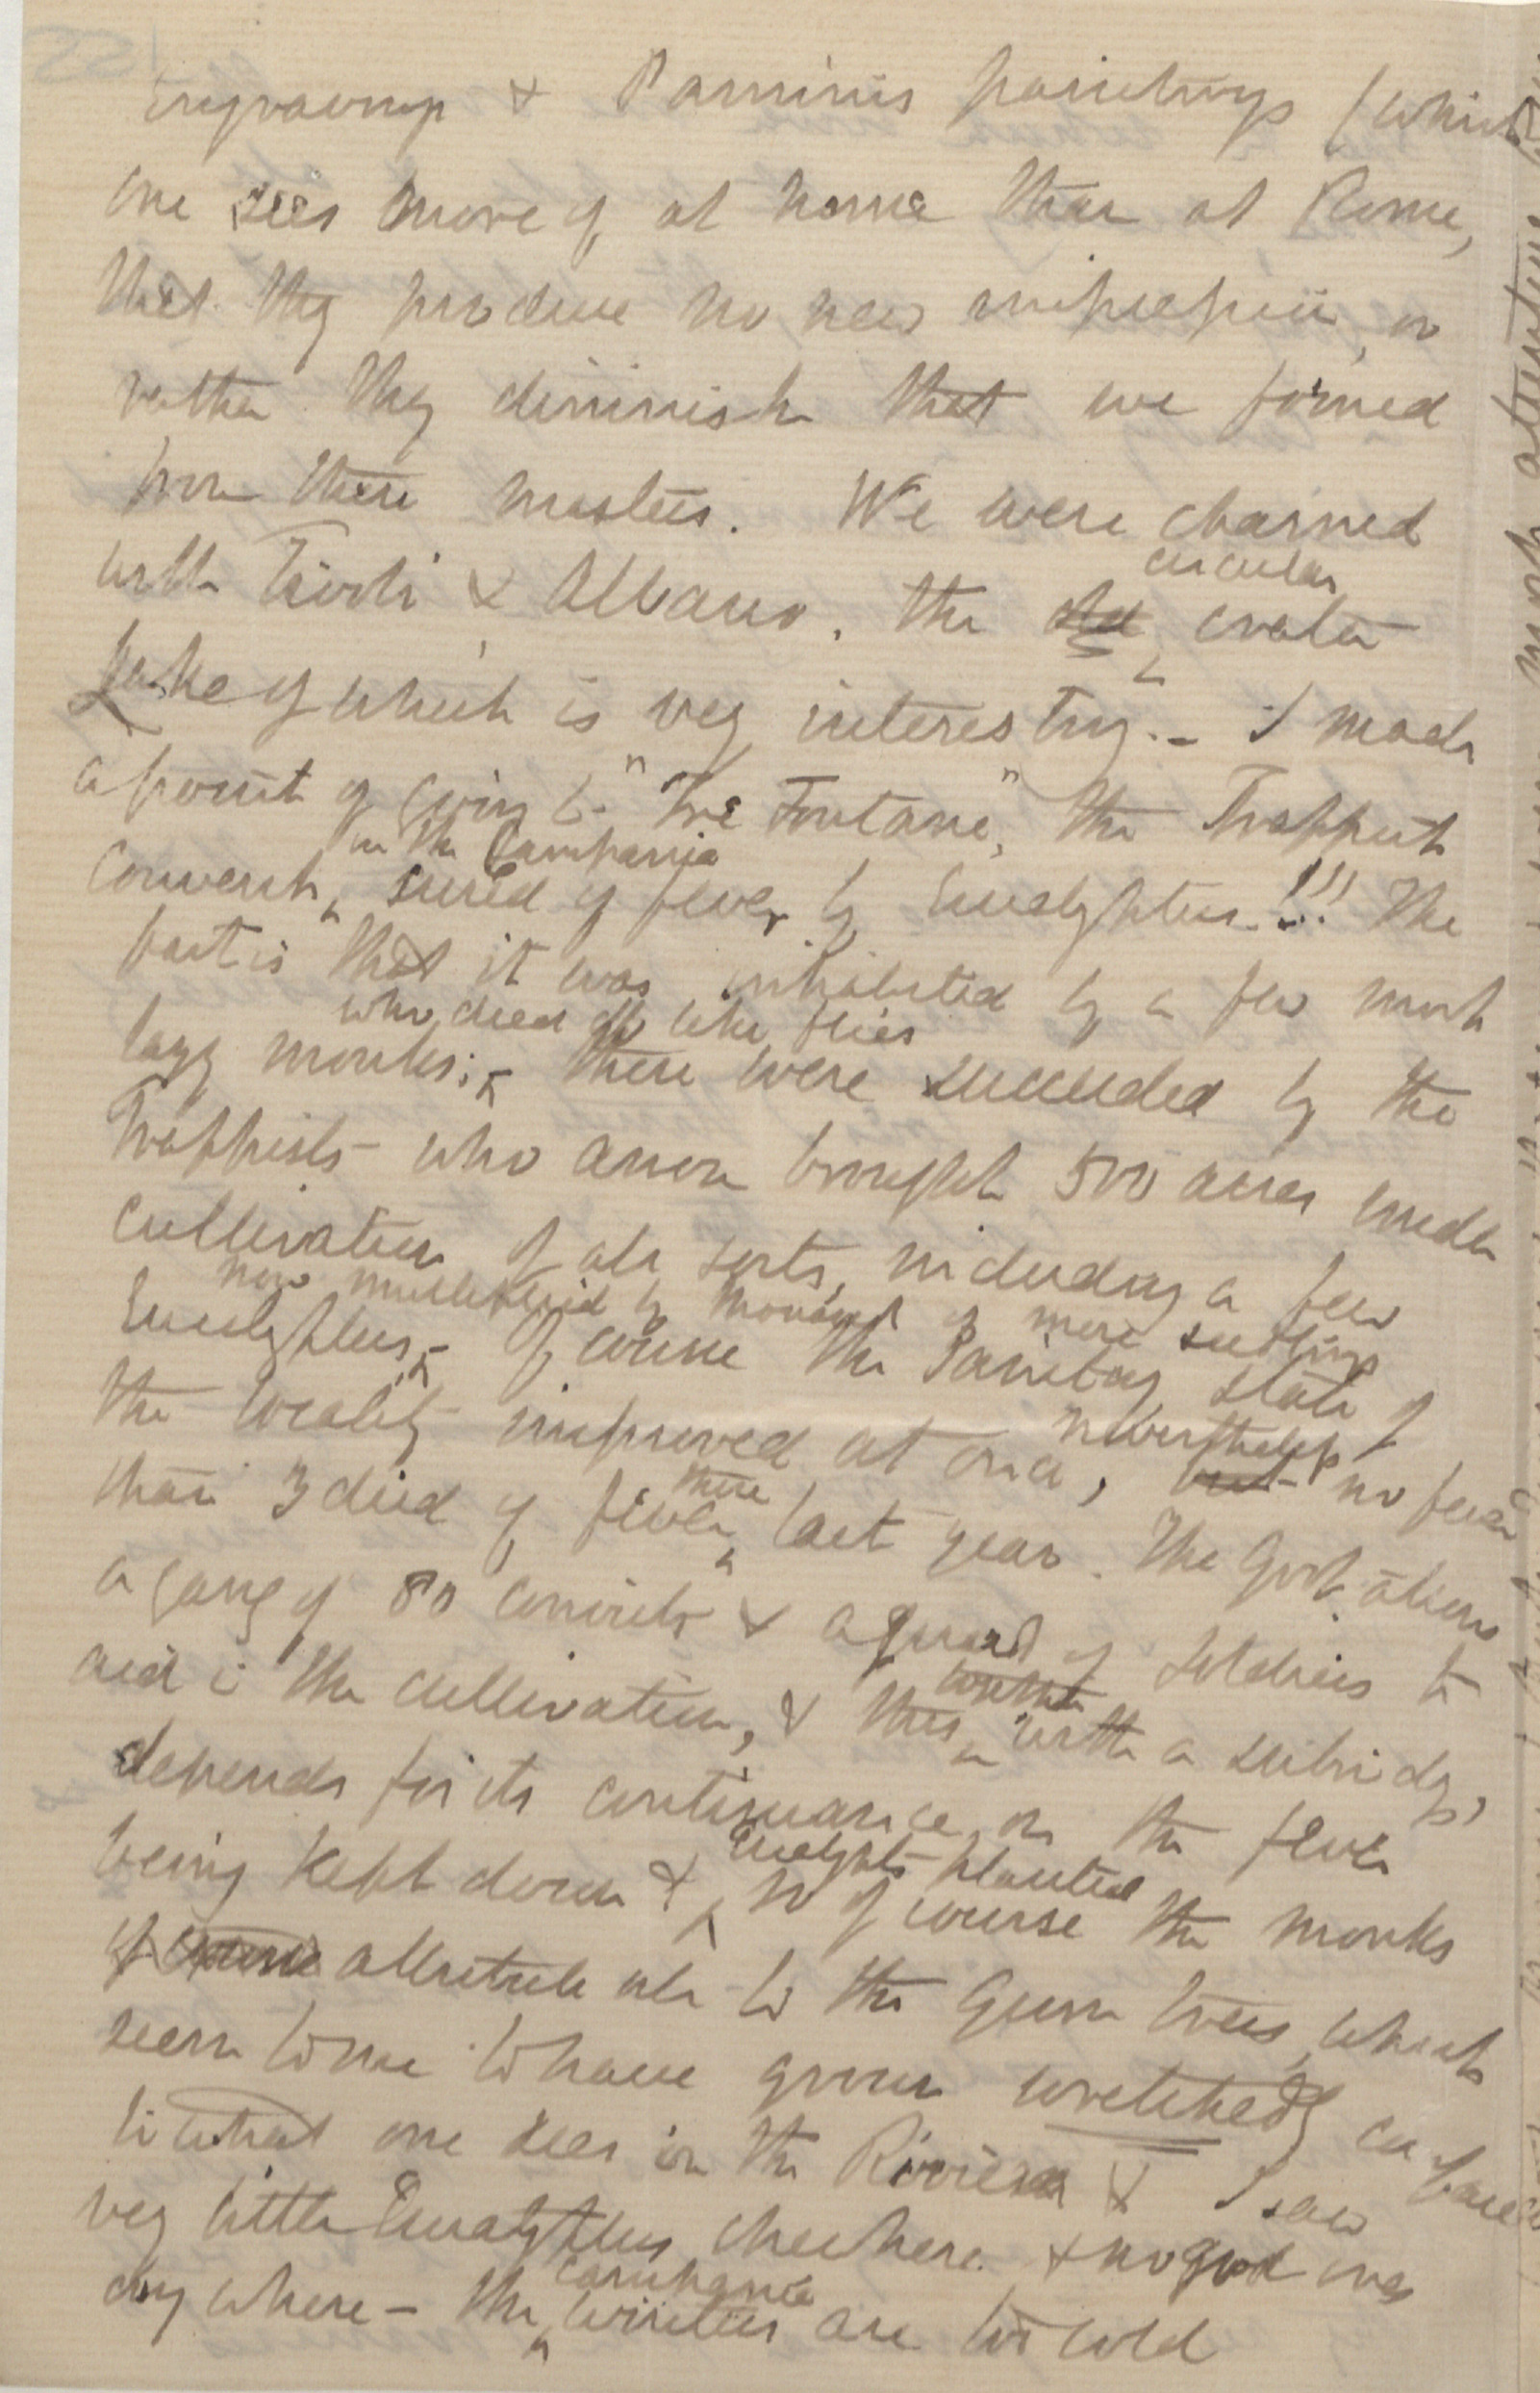 Engravings & Paninis paintings (which
one sees more of at home than at Rome,
that they produce no new impression, or
rather they diminish that we formed
from these masters. We were charmed
with Tivoli & Albano, the old circular crater
Lake of which is very interesting. – I made
a point of going to "Tre Fontane", the Trappist
Convent, in the Campania cured of fever by Eucalyptus.!!! The
fact is that it was inhabited by a few most
lazy monks; who died off like flies these were succeeded by the
Trappists – who anon brought 500 acres under
cultivation of all sorts, including a few
Eucalyptus, now multiplied by thousands of mere seedlings – Of course the Sanitary state of
the locality improved at once, but nevertheless no fewer
than 3 died of fever there last year. The Govt. allows
a gang of 80 convicts & a guard of Soldiers to
aid in the cultivation, & this with a subsidy,
depends for its continuance on the fever
being kept down & Eucalypts planted so of course the monks
of course attribute all to the Gum trees, which
seem to me to have grown wretchedly compared
to what one sees in the Riviera & I saw
very little Eucalyptus elsewhere & no good ones
any where – the Campania winters are too cold